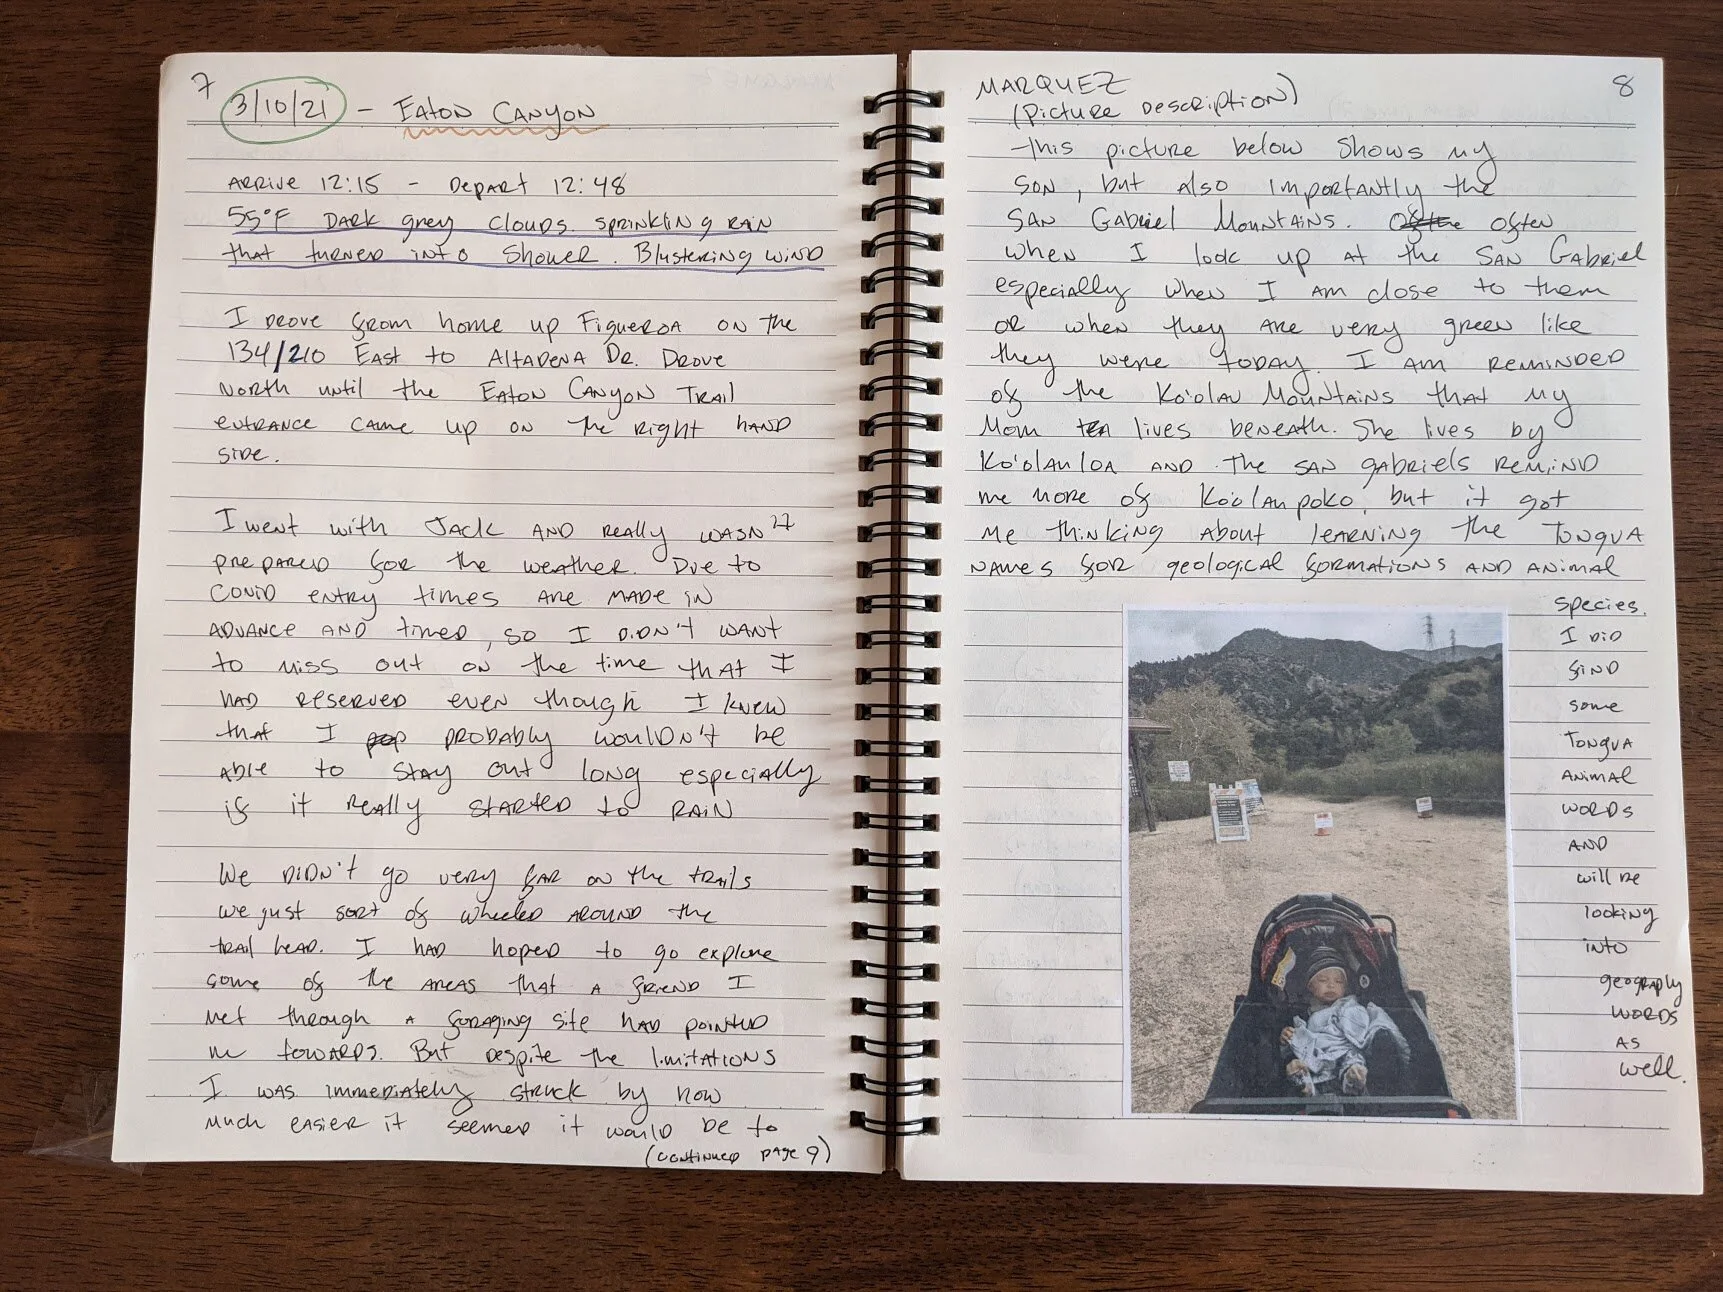 7
3/10/21 - Eaton Canyon
Arrive 12:15 - Depart 12:48
55°F Dark grey clouds sprinkling rain
that turned into shower. Blustering wind
I drove from home up Figueroa on the
134/210 East to Altadena Dr. Drove
North until the Eaton Canyon Trail
entrance came up on the right hand
side.
I went with Jack and really wasn't
prepared for the weather. Due to
Covid entry times are made in
advance and timed, so I didn't want
to miss out on the time that I
had reserved even though I knew
that I probably wouldn't be
able to stay out long especially
if it really started to rain
We didn't go very far on the trails
we just sort of wheeled around the
trail head. I had hoped to go explore
some of the areas that a friend I
met through a foraging site had pointed
me towards. But despite the limitations
I was immediately struck by how
much easier it seemed it would be to
(continued page 9)
MARQUEZ
8
(Picture description)
This picture below shows my
son, but also importantly the
San Gabriel Mountains. often
when I look up at the San Gabriel
especially when I am close to them
or when they are very green like
they were today. I am reminded
of the Ko'olau Mountains that my
Mom lives beneath. She lives by
Ko'olauloa and the San Gabriels remind
me more of Ko'olaupoko, but it got
me thinking about learning the Tongva
names for geological formations and animal
species.
I did
find
some
Tongva
animal
words
and
will be
looking
into
geography
words
as
well.